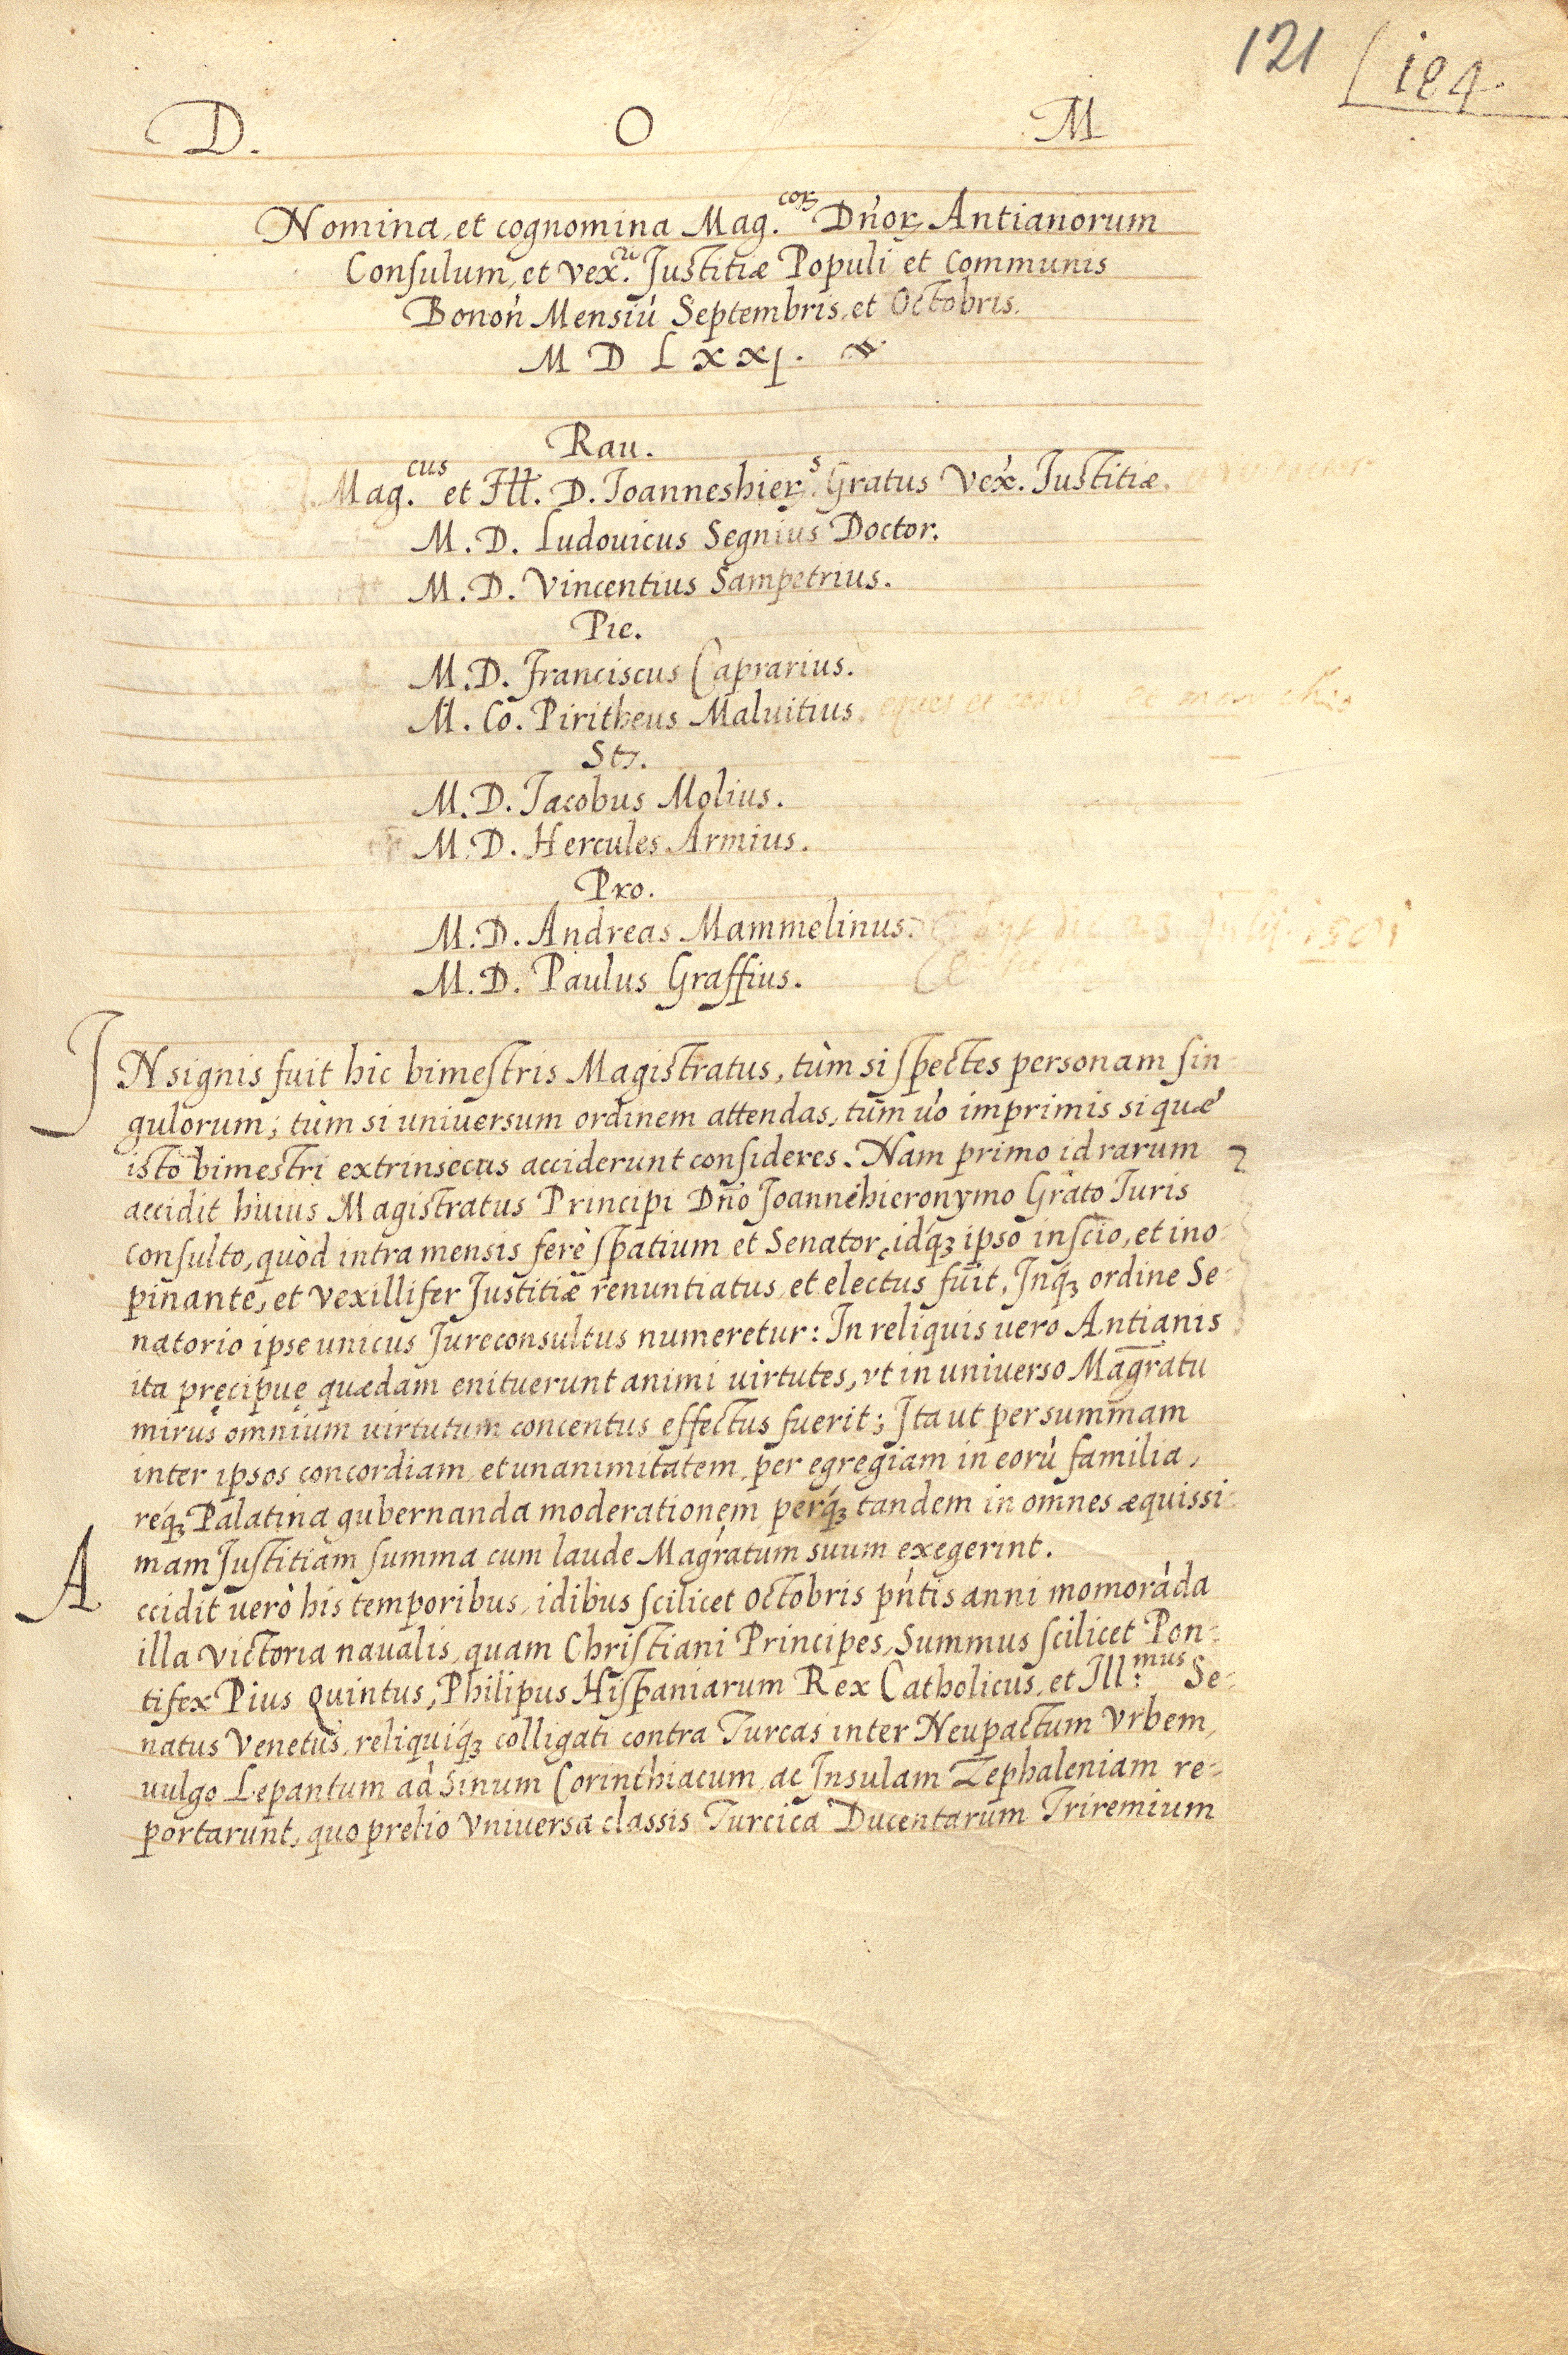 121 184
D. O M
Nomina, et cognomina Mag.coꝝ Dn̄oꝝ Antianorum
Consulum, et vex.ri Justitiæ Populi et Communis
Bonoń Mensiú Septembris, et Octobris.
M D L x x j.
Rau.
Mag.cus et Ill. D. Joanneshier.s Gratus Vex. Justitiæ.
M. D. Ludouicus Segnius Doctor.
M. D. Vincentius Sampetrius.
Pie.
M. D. Franciscus Caprarius.
M. Co. Piritheus Maluitius. eques et
Str.
M. D. Jacobus Molius.
M. D. Hercules Armius.
Pro.
M. D. Andreas Mammelinus. die 23
M. D. Paulus Graffius.
INsignis fuit hic bimestris Magistratus, tùm si spectes personam sin-
gulorum; tùm si universum ordinem attendas, tùm uò imprimis si quæ
isto bimestri extrinsecus acciderunt consideres. Nam primo id rarum
accidit huius Magistratus Principi Dn̄o Joannehieronymo Grato Juris
consulto, quòd intra mensis ferè spatium et Senator, idq́ꝫ ipso inscio, et ino-
pinante, et vexillifer Justitiæ renuntiatus, et electus fuit, Inq́ꝫ ordine Se-
natorio ipse unicus Jureconsultus numeretur: In reliquis vero Antianis
ita pręcipuę quædam enituerunt animi virtutes, vt in universo Magr̄atu
mirus omnium virtutum concentus effectus fuerit; Ita ut per summam
inter ipsos concordiam, et unanimitatem, per egregiam in eorù familia,
réq́ꝫ Palatina gubernanda moderationem, perq́ꝫ tandem in omnes æquissi-
mam Justitiam summa cum laude Magr̄atum suum exegerint.
Accidit uerò his temporibus, idibus scilicet octobris pn̄tis anni momoráda
illa victoria naualis, quam Christiani Principes, Summus scilicet Pon-
tifex Pius Quintus, Philipus Hispaniarum Rex Catholicus, et Ill:mus Se-
natus Venetus, reliquiq́ꝫ colligati contra Turcas inter Neupactum Vrbem,
uulgo Lepantum ad Sinum Corinthiacum, ac Insulam Zephaleniam re-
portarunt, quo prelio Vniuersa classis Turcica Ducentarum Triremium